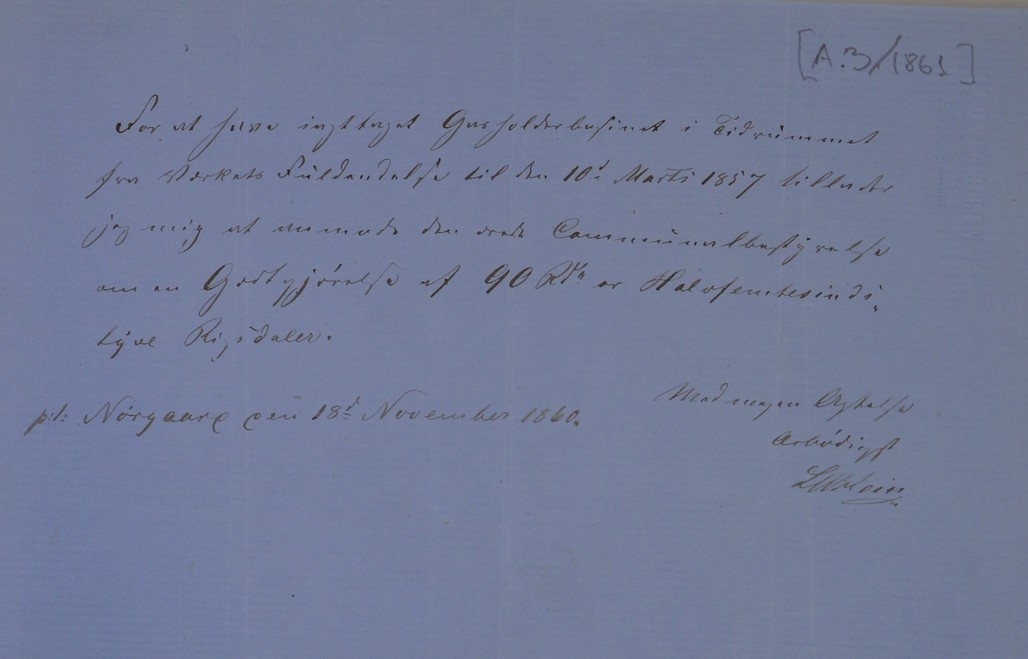 [A.3/1861]
For at have iagttaget Gasholderbasinet i Tidrummet
fra Værkets Fuldendelse til den 10d Marts 1857 tillader
jeg mig at anmode den ærede Communalbestyrelse
om en Godtgjörelse af 90 Rdr er Halvfemtesinds-
tyve Rigsdaler.
p:t: Nörgaard den 18d November 1860.
Med megen Agtelse
Ærbödigst